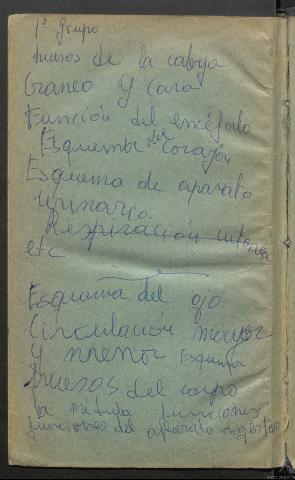 1º grupo
huesos de la cabeza
Craneo y Cara
Función del encéfalo
Esquema del Corazón
Esquema de aparato
urinario.
Respiración interna
etc
Esquema del ojo
Circulación mayor
y menor Esquema
huesos del cuerpo
la médula funciones
funciones del aparato digestivo